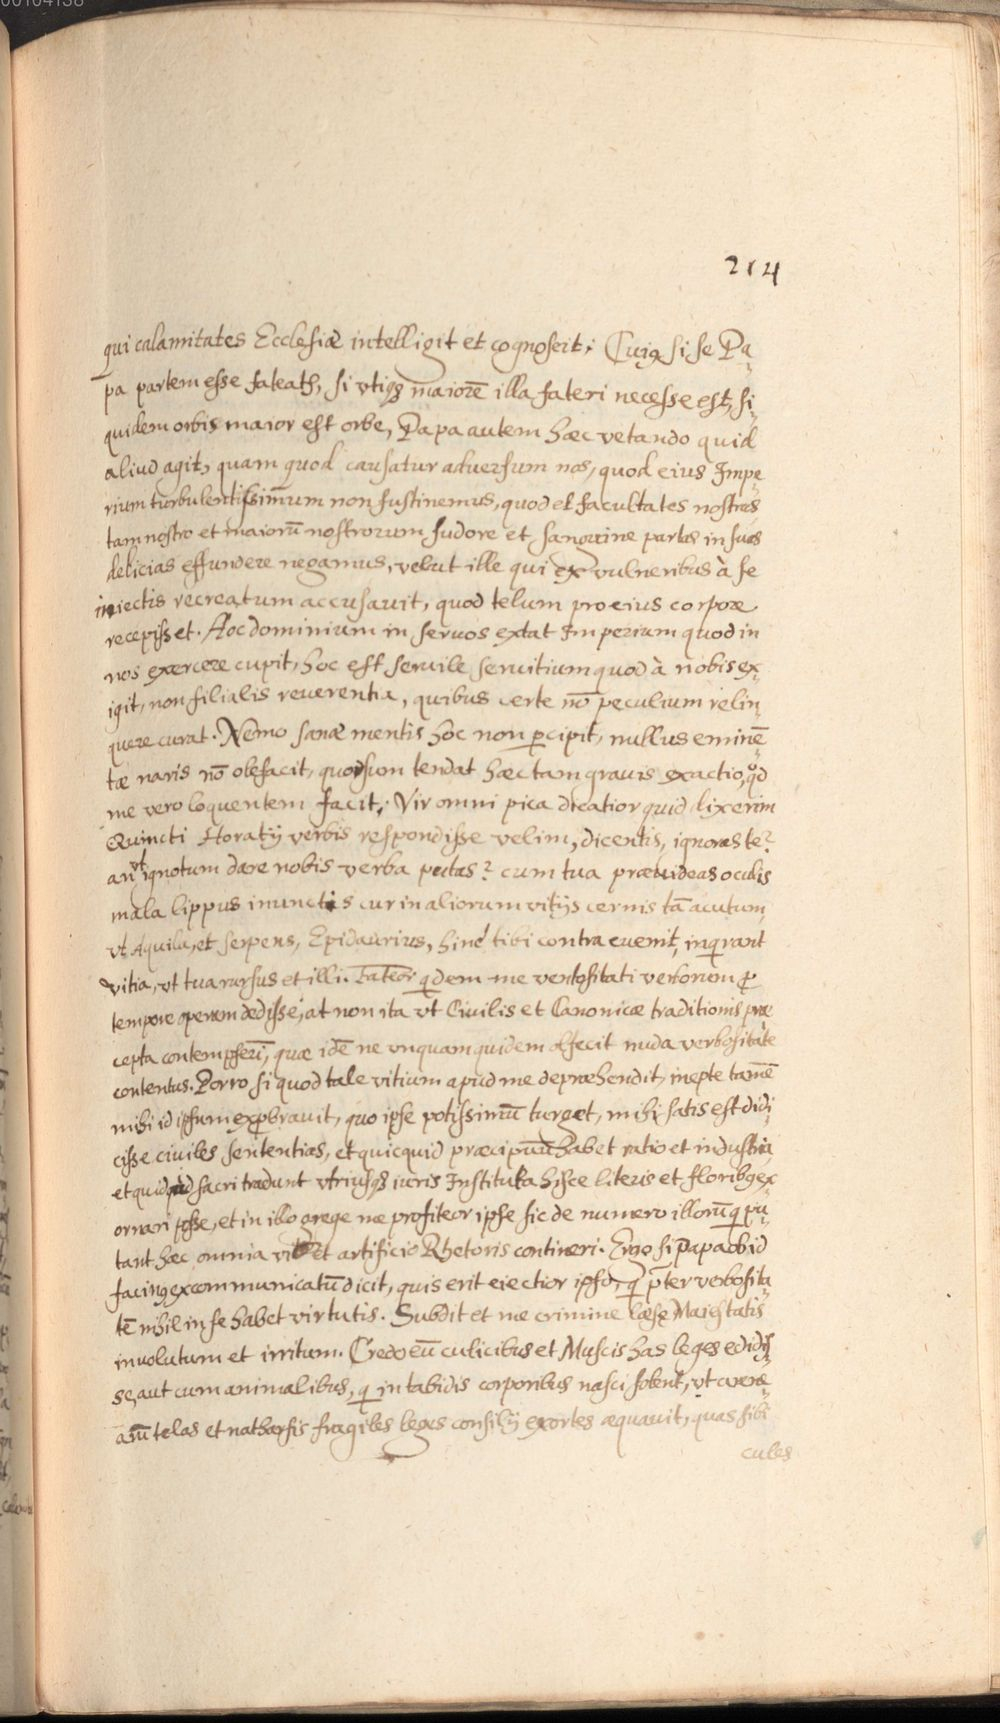 00104138
214
qui calamitates Ecclesiæ intelligit et cognoscit; Cuiꝰ si se Pa
pa partem esse fateatr, si vtiqȝ maiorē illa fateri necesse est, si
quidem orbis maior est orbe, Papa autem hæc vetando quid
aliud agit, quam quod causatur adversum nos, quod eius Impe
rium turbulentissimum non sustinemus, quod et facultates nostras
tam nostro et maiorū nostrorum sudore et sanguine partas in suas
delicias effundere negamus, velut ille qui ex vulneribus à se
iniectis recreatum accusavit, quod telum pro eius corpore
recepisset. Hoc dominium in servos extat Imperium quod in
nos exercere cupit, hoc est servile servitium quod à nobis ex
igit, non filialis reverentia, quibus certe nō peculium relin
quere curat. Nemo sanæ mentis hoc non pcipit, nullus eminē
tæ naris nō olefacit, quorsum tendat hæc tam gravis exactio, qd
me vero loquentem facit; Vir omni pica dicatior quid dixerim
Quincti Horatij verbis respondisse velim, dicentis, ignoras te?
an vt ignotum dare nobis verba putas? cum tua prævideas oculis
mala lippus inunctis cur in aliorum vitijs cernis tā acutum
vt Aquila, et serpens, Epidaurius, hinc tibi contra evenit, inqrant
vitia, vt tua rursus et illi. Fateor qdem me ventositati verborum p
tempore operam dedisse, at non ita vt Civilis et Canonicæ traditionis præ
cepta contempserī, quæ idē ne vnquam quidem olfecit nuda verbositate
contentus. Porro si quod tale vitium apud me depræhendit, inepte tamē
mihi id ipsum exprobravit, quo ipse potissimū turget, mihi satis est didi
cisse civiles sententias, et quicquid præcipuū habet ratio et industria
et quidquid sacri tradunt vtriusqȝ iuris Instituta hisce literis et floribꝰ ex
ornari posse, et in illo grege me profiteor ipse sic de numero illorū q pu
tant hæc omnia vi et artificio Rhetoris contineri. Ergo si papa ob id
facinꝰ excommunicatū dicit, quis erit eiectior ipso, q pter verbosita
tē nihil in se habet virtutis. Subdit et me crimine læsę Maiestatis
involutum et irritum. Credo eū culicibus et Muscis has leges edidis
se, aut cum animalibus, q in tabidis corporibus nasci solent, vt
telas et fragiles leges consilij exortes æquavit, quas sibi
cules